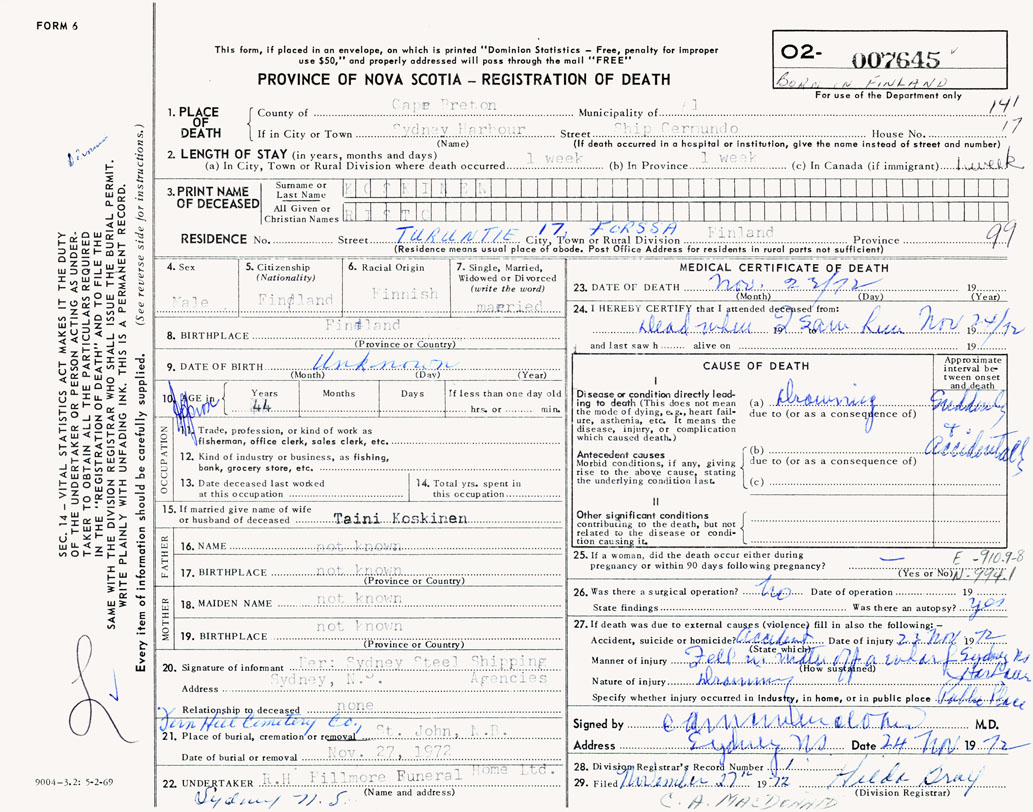 FORM 6
This form, if placed in an envelope, on which is printed "Dominion Statistics – Free, penalty for improper
use $50," and properly addressed will pass through the mail "FREE"
PROVINCE OF NOVA SCOTIA – REGISTRATION OF DEATH
O2- 007645
BORN IN FINLAND
For use of the Department only
141
17
1. PLACE OF DEATH
County of Cape Breton Municipality of /1
If in City or Town Sydney Harbour Street Ship Cermundo House No.
(Name) (If death occurred in a hospital or institution, give the name instead of street and number)
2. LENGTH OF STAY (in years, months and days)
(a) In City, Town or Rural Division where death occurred 1 week (b) In Province 1 week (c) In Canada (if immigrant) 1 week
3. PRINT NAME OF DECEASED
Surname or Last Name KOSKINEN
All Given or Christian Names RISTO
RESIDENCE No. Street TURUNTIE 17, FORSSA City, Town or Rural Division Finland Province 99
(Residence means usual place of abode. Post Office Address for residents in rural parts not sufficient)
4. Sex
Male
5. Citizenship
(Nationality)
Findland
6. Racial Origin
Finnish
7. Single, Married,
Widowed or Divorced
(write the word)
married
8. BIRTHPLACE Findland
(Province or Country)
9. DATE OF BIRTH Unknown
(Month) (Day) (Year)
10. AGE in Approx
Years 44 Months Days If less than one day old
hrs. or min.
OCCUPATION
11. Trade, profession, or kind of work as
fisherman, office clerk, sales clerk, etc.
12. Kind of industry or business, as fishing,
bank, grocery store, etc.
13. Date deceased last worked
at this occupation
14. Total yrs. spent in
this occupation
15. If married give name of wife
or husband of deceased Taini Koskinen
FATHER
16. NAME not known
17. BIRTHPLACE not known
(Province or Country)
MOTHER
18. MAIDEN NAME not known
19. BIRTHPLACE not known
(Province or Country)
20. Signature of informant Per: Sydney Steel Shipping
Address Sydney, N.S. Agencies
Relationship to deceased none
Fern Hill Cemetery Co,
21. Place of burial, cremation or removal St. John, N.B.
Date of burial or removal Nov. 27, 1972
22. UNDERTAKER R.H. Fillmore Funeral Home Ltd.
(Name and address)
Sydney N.S.
MEDICAL CERTIFICATE OF DEATH
23. DATE OF DEATH Nov. 23/72 19
(Month) (Day) (Year)
24. I HEREBY CERTIFY that I attended deceased from:
Dead when I saw him Nov 24/72
and last saw h alive on 19
CAUSE OF DEATH
Approximate
interval be-
tween onset
and death
I
Disease or condition directly lead-
ing to death (This does not mean
the mode of dying, e.g., heart fail-
ure, asthenia, etc. it means the
disease, injury, or complication
which caused death.)
(a) Drowning
due to (or as a consequence of)
Suddenly
&
Accidentally
Antecedent causes
Morbid conditions, if any, giving
rise to the above cause, stating
the underlying condition last.
(b)
due to (or as a consequence of)
(c)
II
Other significant conditions
contributing to the death, but not
related to the disease or condi-
tion causing it.
25. If a woman, did the death occur either during
pregnancy or within 90 days following pregnancy? —
(Yes or No)
E -910.9-8
N-994.1
26. Was there a surgical operation? No Date of operation 19
State findings Was there an autopsy? yes
27. If death was due to external causes (violence) fill in also the following:–
Accident, suicide or homicide? Accident Date of injury 23 Nov 1972
(State which)
Manner of injury Fell in water off a wharf Sydney NS
(How sustained)
Harbour
Nature of injury Drowning
Specify whether injury occurred in Industry, in home, or in public place Public Place
Signed by M.D.
Address Sydney NS Date 24 Nov 1972
28. Division Registrar's Record Number 1
29. Filed November 27th 1972 Hilda Gray
(Division Registrar)
C. A. MACDONALD
SEC. 14 – VITAL STATISTICS ACT MAKES IT THE DUTY
OF THE UNDERTAKER OR PERSON ACTING AS UNDER-
TAKER TO OBTAIN ALL THE PARTICULARS REQUIRED
IN THE "REGISTRATION OF DEATH" AND TO FILE THE
SAME WITH THE DIVISION REGISTRAR WHO SHALL ISSUE THE BURIAL PERMIT.
WRITE PLAINLY WITH UNFADING INK. THIS IS A PERMANENT RECORD.
Every item of information should be carefully supplied. (See reverse side for instructions.)
9004-3.2: 5-2-69